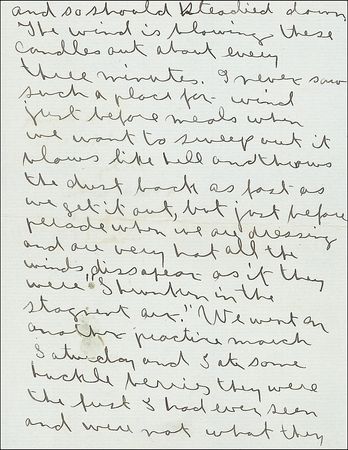 and so should steadied down
The wind is blowing these
candles out about every
three minutes. I never saw
such a place for wind
just before meals when
we want to sweep out it
blows like hell and throws
the dust back as fast as
we get it out, but just before
perade when we are dressing
and are very hot all the
winds dissapear as if they
were "Shrunken in the
stagnent air." We went on
another practice march
Saturday and I ate some
huckle berries they were
the first I had ever seen
and were not what they